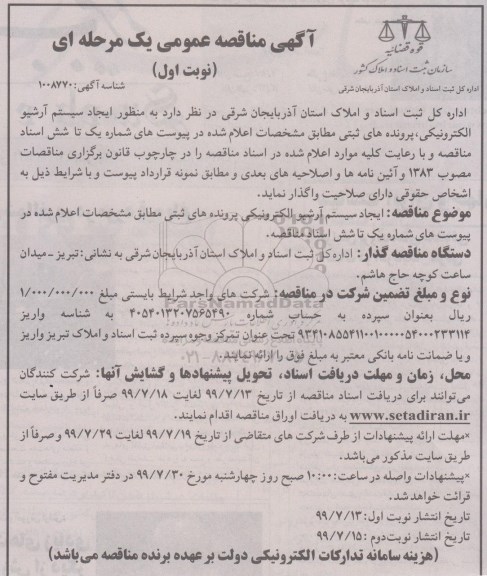 قوه قضائیه
سازمان ثبت اسناد و املاک کشور
اداره کل ثبت اسناد و املاک استان آذربایجان شرقی
آگهی مناقصه عمومی یک مرحله ای
(نوبت اول)
شناسه آگهی: ۱۰۰۸۷۷۰
اداره کل ثبت اسناد و املاک استان آذربایجان شرقی در نظر دارد به منظور ایجاد سیستم آرشیو
الکترونیکی،پرونده های ثبتی مطابق مشخصات اعلام شده در پیوست های شماره یک تا شش اسناد
مناقصه و با رعایت کلیه موارد اعلام شده در اسناد مناقصه را در چارچوب قانون برگزاری مناقصات
مصوب ۱۳۸۳ و آئین نامه ها و اصلاحیه های بعدی و مطابق نمونه قرارداد پیوست و با شرایط ذیل به
اشخاص حقوقی دارای صلاحیت واگذار نماید.
موضوع مناقصه: ایجاد سیستم آرشیو الکترونیکی پرونده های ثبتی مطابق مشخصات اعلام شده در
پیوست های شماره یک تا شش اسناد مناقصه.
دستگاه مناقصه گذار: اداره کل ثبت اسناد و املاک استان آذربایجان شرقی به نشانی: تبریز - میدان
ساعت کوچه حاج هاشم.
نوع و مبلغ تضمین شرکت در مناقصه: شرکت های واجد شرایط بایستی مبلغ ۱/۰۰۰/۰۰۰/۰۰۰
ریال بعنوان سپرده به حساب شماره ۴۰۵۴۰۱۳۲۰۷۵۶۵۴۹۰ به شناسه واریز
۹۳۴۱۰۸۵۵۴۱۱۰۰۱۰۰۰۰۰۵۴۰۰۰۲۳۳۱۱۴ تحت عنوان تمرکز وجوه سپرده ثبت اسناد و املاک تبریز واریز
و یا ضمانت نامه بانکی معتبر به مبلغ فوق را ارائه نمایند.
محل، زمان و مهلت دریافت اسناد، تحویل پیشنهادها و گشایش آنها: شرکت کنندگان
می‌توانند برای دریافت اسناد مناقصه از تاریخ ۹۹/۷/۱۳ لغایت ۹۹/۷/۱۸ صرفاً از طریق سایت
www.setadiran.ir به دریافت اوراق مناقصه اقدام نمایند.
*مهلت ارائه پیشنهادات از طرف شرکت های متقاضی از تاریخ ۹۹/۷/۱۹ لغایت ۹۹/۷/۲۹ و صرفاً از
طریق سایت مذکور می‌باشد.
*پیشنهادات واصله در ساعت: ۱۰:۰۰ صبح روز چهارشنبه مورخ ۹۹/۷/۳۰ در دفتر مدیریت مفتوح و
قرائت خواهد شد.
تاریخ انتشار نوبت اول: ۹۹/۷/۱۳
تاریخ انتشار نوبت دوم: ۹۹/۷/۱۵
(هزینه سامانه تدارکات الکترونیکی دولت بر عهده برنده مناقصه می باشد)
ParsNamadData